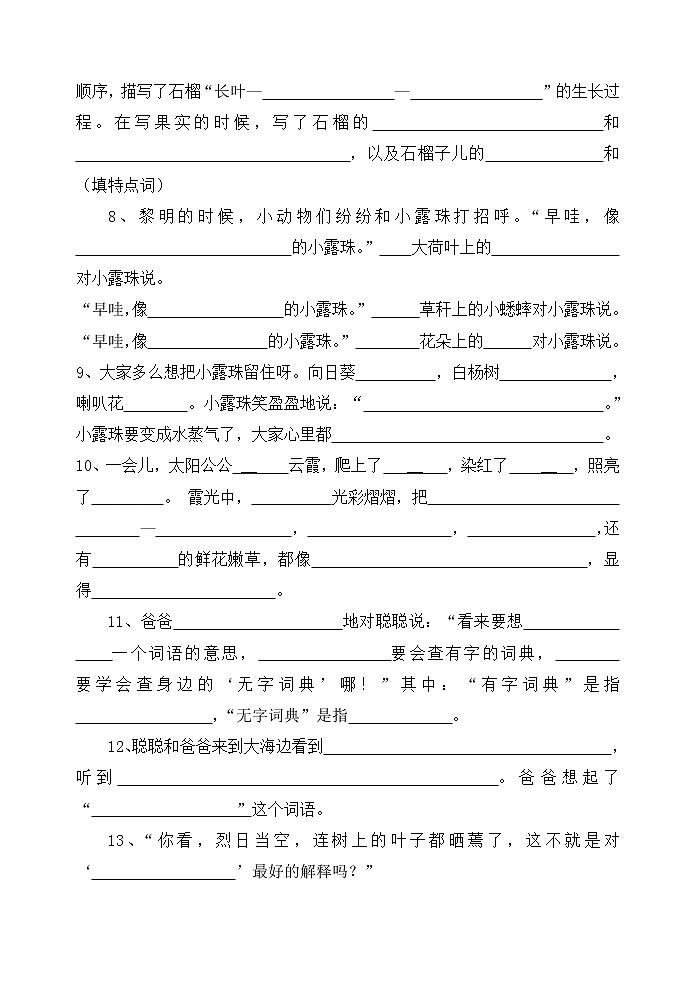 顺序，描写了石榴“长叶—________________—________________”的生长过
程。在写果实的时候，写了石榴的____________________________和
__________________________________，以及石榴子儿的______________和
（填特点词）
8、黎明的时候，小动物们纷纷和小露珠打招呼。“早哇，像
__________________________的小露珠。”____大荷叶上的________________
对小露珠说。
“早哇,像_________________的小露珠。”______草秆上的小蟋蟀对小露珠说。
“早哇,像_______________的小露珠。”________花朵上的______对小露珠说。
9、大家多么想把小露珠留住呀。向日葵__________，白杨树______________，
喇叭花________。小露珠笑盈盈地说：“______________________________。”
小露珠要变成水蒸气了，大家心里都__________________________________。
10、一会儿，太阳公公_______云霞，爬上了________，染红了________，照亮
了_________。 霞光中，__________光彩熠熠，把________________________
________—_________________，__________________，________________,还
有___________的鲜花嫩草，都像__________________________________，显
得_______________________。
11、爸爸_____________________地对聪聪说：“看来要想____________
____一个词语的意思，________________要会查有字的词典，________
要学会查身边的‘无字词典’哪！”其中：“有字词典”是指
_________________，“无字词典”是指_____________。
12、聪聪和爸爸来到大海边看到____________________________________，
听到______________________________________________。爸爸想起了
“__________________”这个词语。
13、“你看，烈日当空，连树上的叶子都晒蔫了，这不就是对
‘__________________’最好的解释吗？”